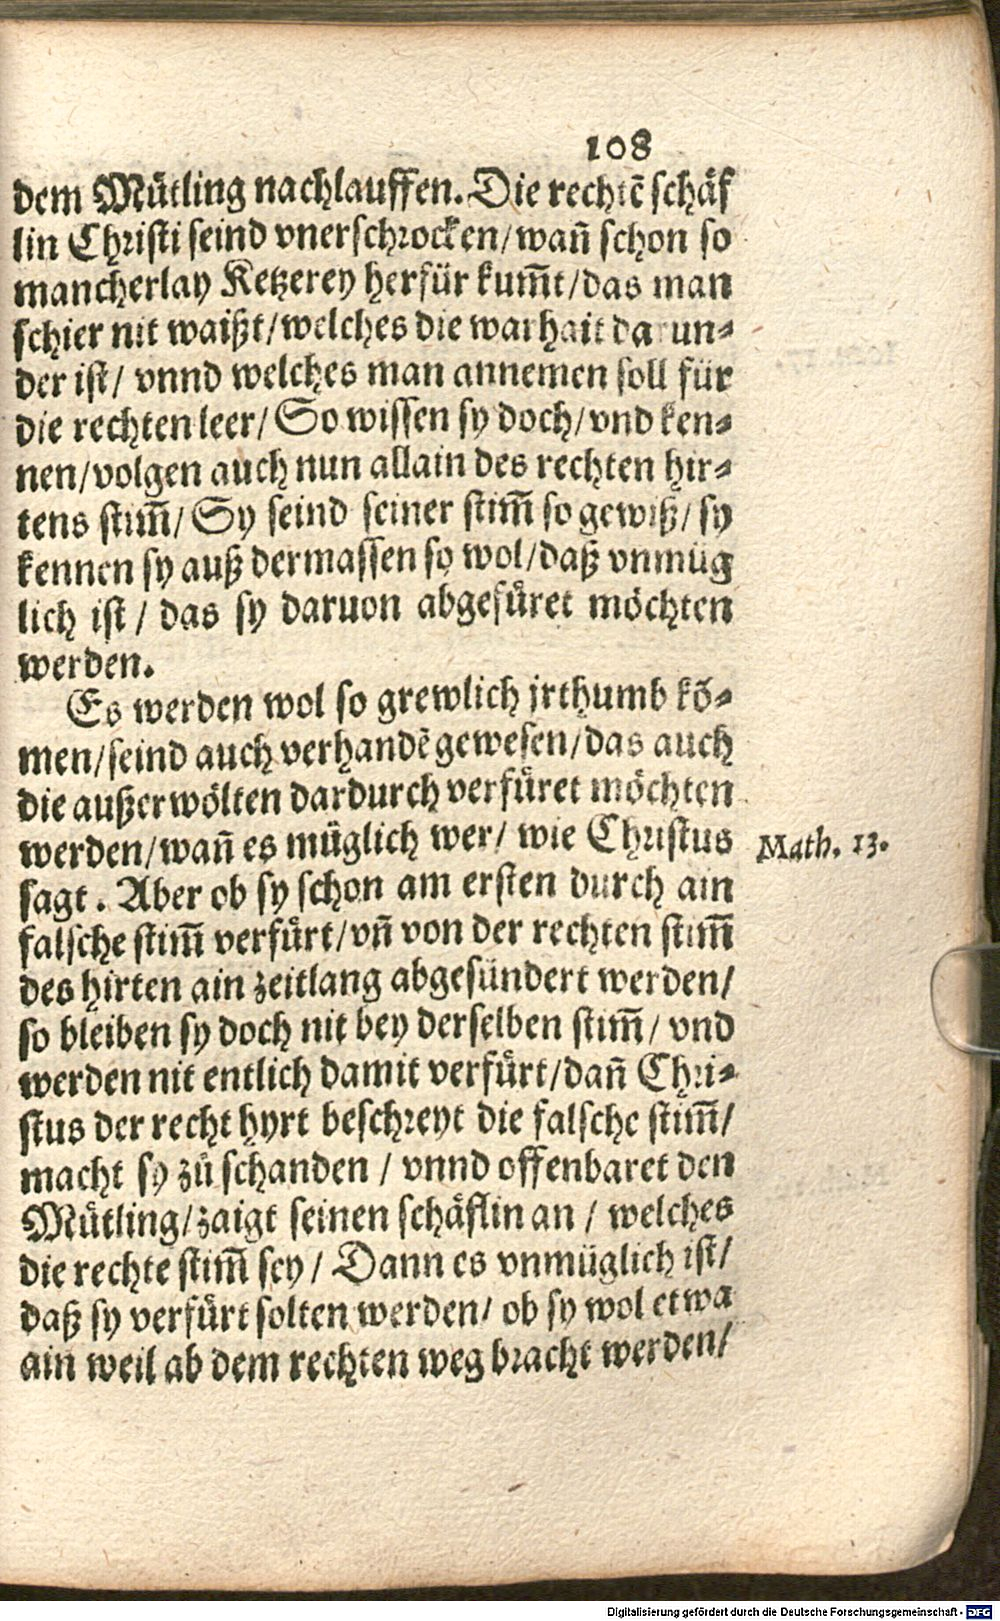 108
dem Mütling nachlauffen. Die rechtẽ schäf
lin Christi seind vnerschrocken/ wañ schon so
mancherlay Ketzerey herfür kum̃t/ das man
schier nit waißt/ welches die warhait darun-
der ist/ vnnd welches man annemen soll für
die rechten leer/ So wissen sy doch/ vnd ken-
nen/ volgen auch nun allain des rechten hir-
tens stim̃/ Sy seind seiner stim̃ so gewiß/ sy
kennen sy auß dermassen so wol/ daß vnmüg
lich ist/ das sy daruon abgefüret möchten
werden.
Es werden wol so grewlich jrthumb kõ-
men/ seind auch verhandẽ gewesen/ das auch
die außerwölten dardurch verfüret möchten
werden/ wañ es müglich wer/ wie Christus
Math. 13.
sagt. Aber ob sy schon am ersten durch ain
falsche stim̃ verfürt/ vñ von der rechten stim̃
des hirten ain zeitlang abgesündert werden/
so bleiben sy doch nit bey derselben stim̃/ vnd
werden nit entlich damit verfürt/ dañ Chri-
stus der recht hyrt beschreyt die falsche stim̃/
macht sy zů schanden/ vnnd offenbaret den
Mütling/ zaigt seinen schäflin an/ welches
die rechte stim̃ sey/ Dann es vnmüglich ist/
daß sy verfürt solten werden/ ob sy wol etwa
ain weil ab dem rechten weg bracht werden/
Digitalisierung gefördert durch die Deutsche Forschungsgemeinschaft - DFG